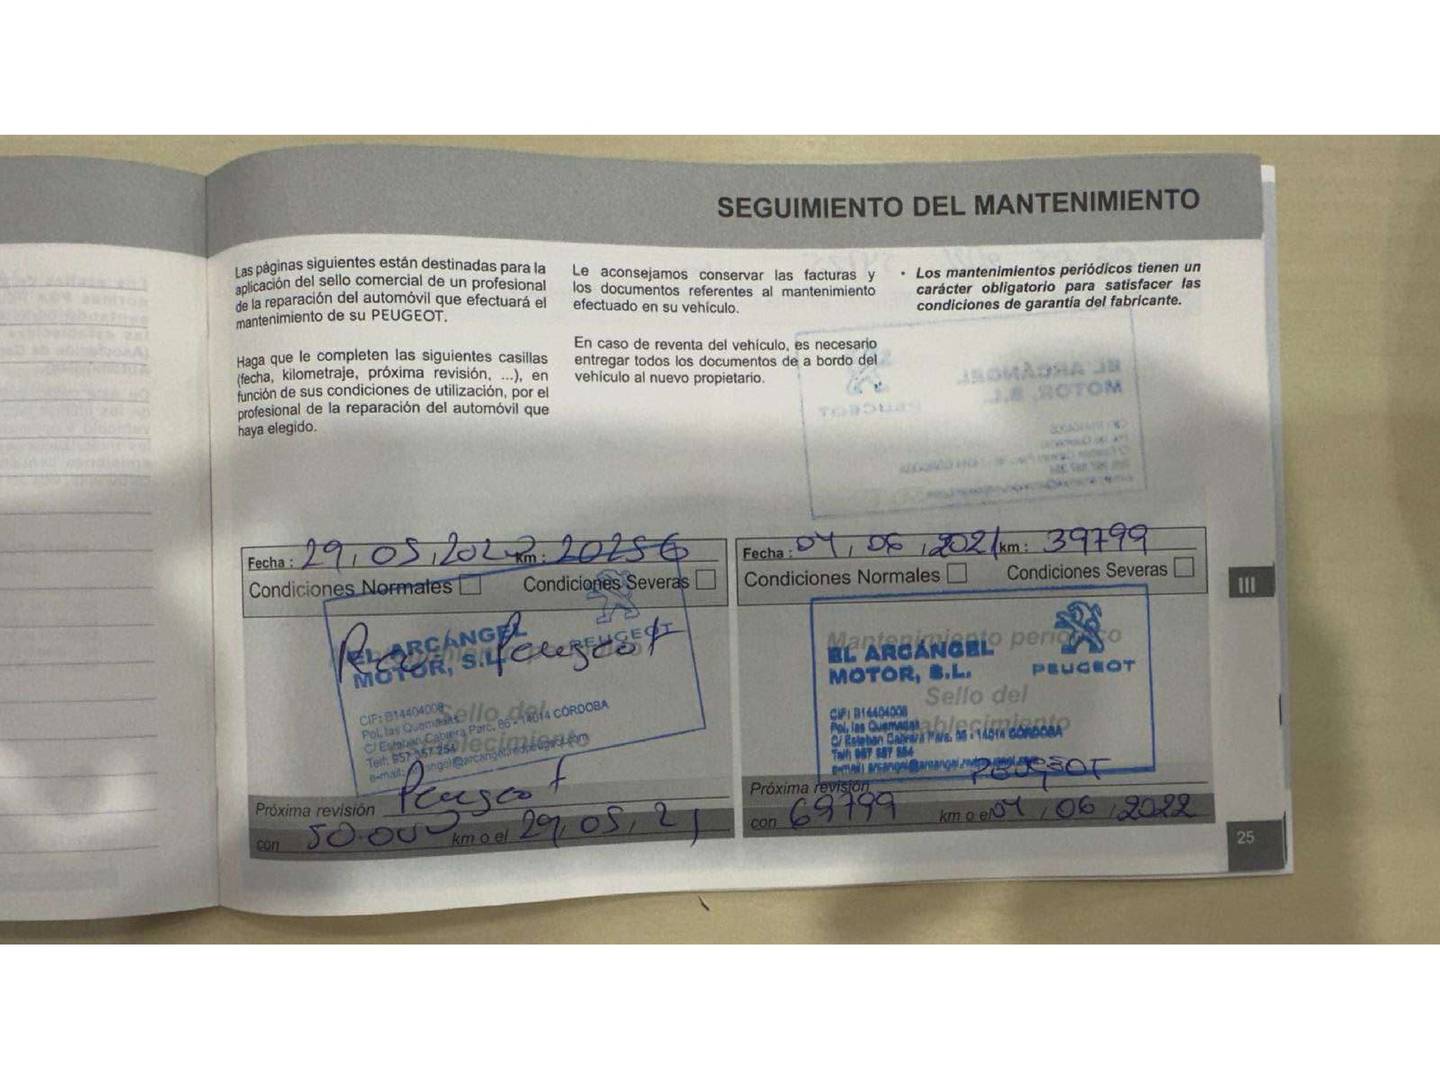 SEGUIMIENTO DEL MANTENIMIENTO
Las páginas siguientes están destinadas para la
aplicación del sello comercial de un profesional
de la reparación del automóvil que efectuará el
mantenimiento de su PEUGEOT.
Haga que le completen las siguientes casillas
(fecha, kilometraje, próxima revisión, ...), en
función de sus condiciones de utilización, por el
profesional de la reparación del automóvil que
haya elegido.
Le aconsejamos conservar las facturas y
los documentos referentes al mantenimiento
efectuado en su vehículo.
En caso de reventa del vehículo, es necesario
entregar todos los documentos de a bordo del
vehículo al nuevo propietario.
• Los mantenimientos periódicos tienen un
carácter obligatorio para satisfacer las
condiciones de garantía del fabricante.
Fecha : 29, 05, 2020 km : 20256
Condiciones Normales Condiciones Severas
EL ARCÁNGEL
MOTOR, S.L.
PEUGEOT
Peugeot
CIF: B14404008
Pol. las Quemadas
C/ Esteban Cabrera Parc. 86 - 14014 CÓRDOBA
Telf: 957 357 254
Sello del
Próxima revisión Peugeot
con 50.000 km o el 29, 05, 21
Fecha : 04, 06, 2021 km : 39799
Condiciones Normales Condiciones Severas
Mantenimiento periódico
EL ARCÁNGEL
MOTOR, S.L.
PEUGEOT
Sello del
establecimiento
CIF: B14404008
Pol. las Quemadas
C/ Esteban Cabrera Parc. 86 - 14014 CÓRDOBA
PEUGEOT
Próxima revisión
con 69799 km o el 04, 06, 2022
III
25